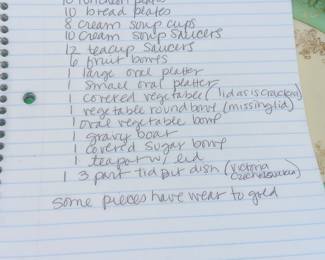 10 luncheon plates
10 bread plates
8 cream soup cups
10 cream soup saucers
12 teacup saucers
6 fruit bowls
1 large oval platter
1 small oval platter
1 covered vegetable (lid as is crack)
1 vegetable round bowl (missing lid)
1 oval vegetable bowl
1 gravy boat
1 covered sugar bowl
1 teapot w/ lid
1 3 part tid bit dish (Victoria Czechoslovakia)
some pieces have wear to gold